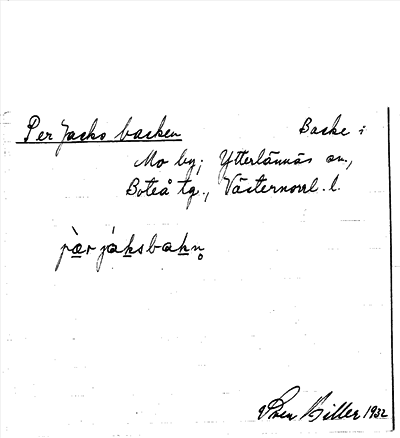 Per Jacks backen Backe i
Mo by, Ytterlännäs sn.,
Boteå tg., Västernorrl. l.
pær jaksbakn̥
Hiller 1932